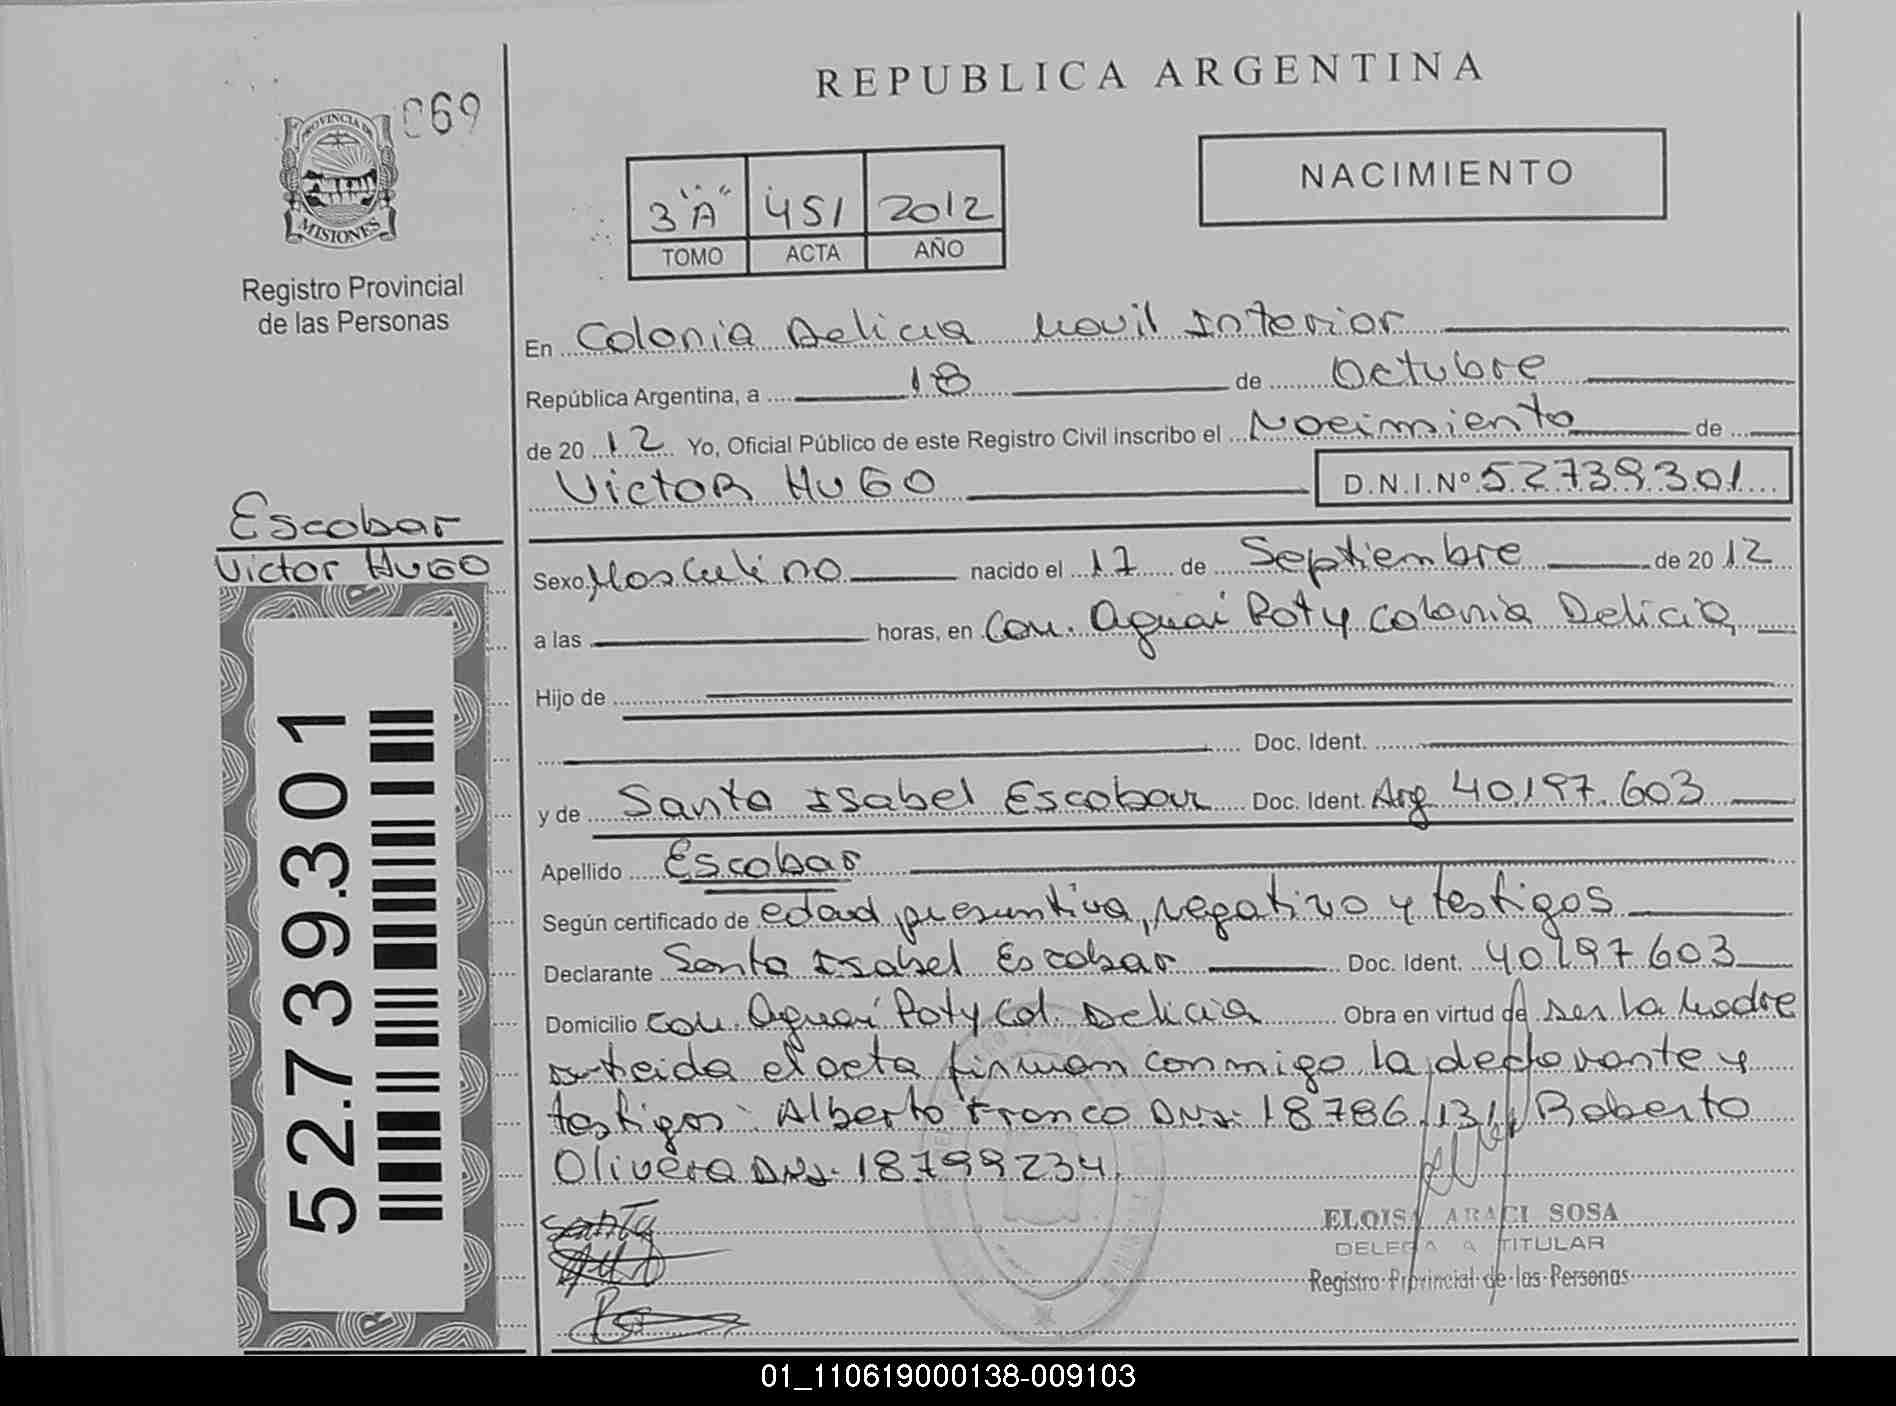 REPUBLICA ARGENTINA
069
PROVINCIA DE
MISIONES
Registro Provincial
de las Personas
NACIMIENTO
3 "A" 451 2012
TOMO ACTA AÑO
En Colonia Delicia Movil Interior
República Argentina, a 18 de Octubre
de 2012 Yo, Oficial Público de este Registro Civil inscribo el Nacimiento de
Victor Hugo D.N.I.Nº 52739301
Escobar
Victor Hugo
Sexo Masculino nacido el 17 de Septiembre de 2012
a las horas, en Com. Aguai Poty Colonia Delicia
Hijo de
Doc. Ident.
y de Santa Isabel Escobar Doc. Ident. Arg 40.197.603
Apellido Escobar
Según certificado de edad presuntiva, negativo y testigos
Declarante Santa Isabel Escobar Doc. Ident. 40197603
Domicilio Com. Aguai Poty Col. Delicia Obra en virtud de ser la Madre
el acta firman conmigo la declarante y
testigos: Alberto Franco DNI: 18786131, Roberto
Olivera DNI: 18799234
Santa
ELOISA ARACI SOSA
DELEGADA TITULAR
Registro Provincial de las Personas
52.739.301
01_110619000138-009103